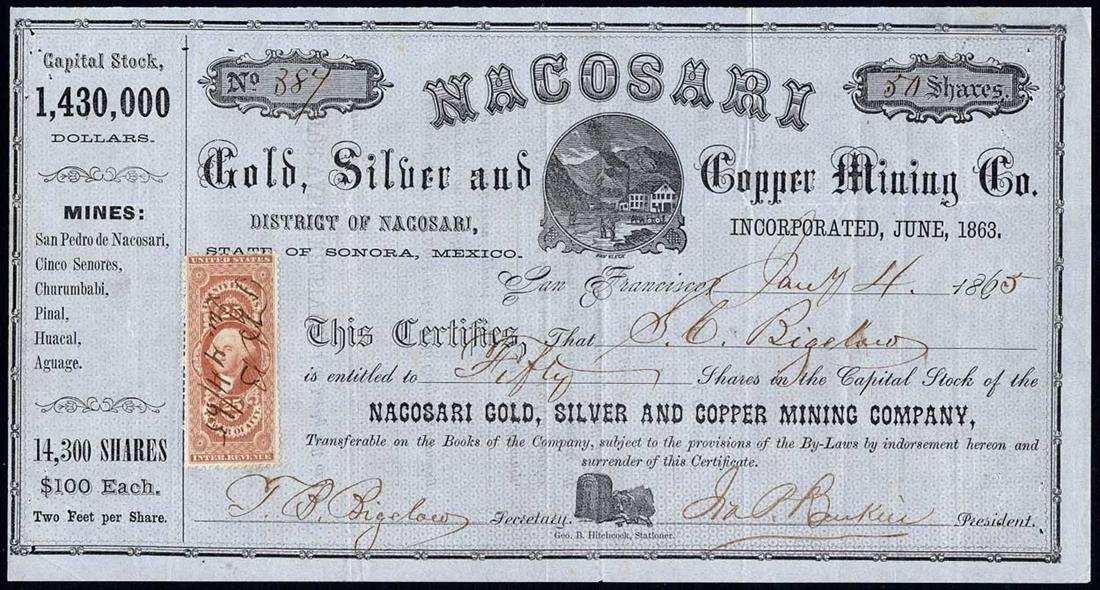 Capital Stock,
1,430,000
DOLLARS.
MINES:
San Pedro de Nacosari,
Cinco Senores,
Churumbabi,
Pinal,
Huacal,
Aguage.
14,300 SHARES
$100 Each.
Two Feet per Share.
No 387
NACOSARI
50 Shares.
Gold, Silver and Copper Mining Co.
DISTRICT OF NACOSARI,
STATE OF SONORA, MEXICO.
INCORPORATED, JUNE, 1863.
VAN VLECK
San Francisco Jany 4. 1865
This Certifies That S. C. Bigelow
is entitled to Fifty Shares in the Capital Stock of the
NACOSARI GOLD, SILVER AND COPPER MINING COMPANY,
Transferable on the Books of the Company, subject to the provisions of the By-Laws by indorsement hereon and
surrender of this Certificate.
T. B. Bigelow Secretary.
President.
Geo. B. Hitchcock, Stationer.
UNITED STATES
25
INTER. REVENUE